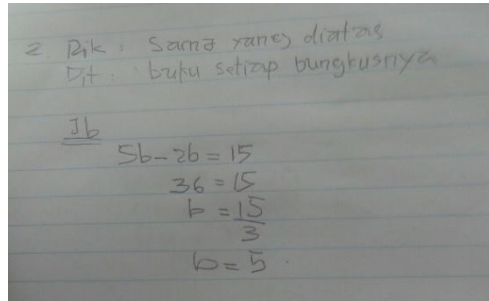 2. Dik : Sama yang diatas
Dit : buku setiap bungkusnya
Jb
5b - 2b = 15
3b = 15
b = 15/3
b = 5.